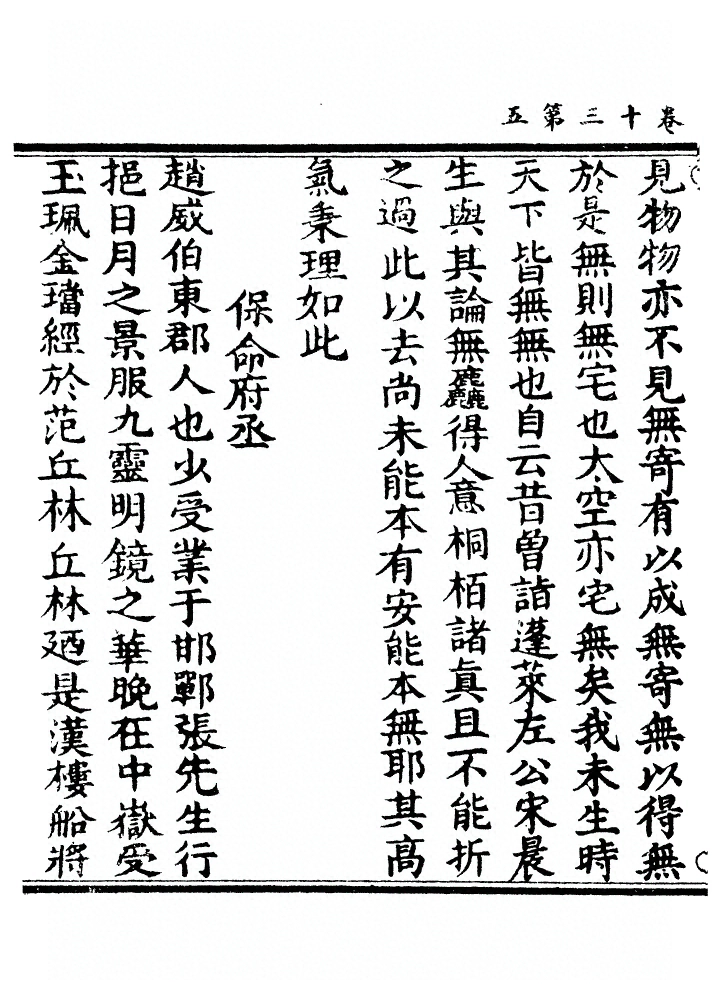 卷十三第五
見物物亦不見無寄有以成無寄無以得無
於是無則無宅也太空亦宅無矣我未生時
天下皆無無也自云昔曾詣蓬萊左公宋晨
生與其論無麤得人意桐栢諸真且不能折
之過此以去尚未能本有安能本無耶其高
氣秉理如此
保命府丞
趙威伯東郡人也少受業于邯鄲張先生行
挹日月之景服九靈明鏡之華晚在中嶽受
玉珮金璫經於范丘林丘林廼是漢樓船將